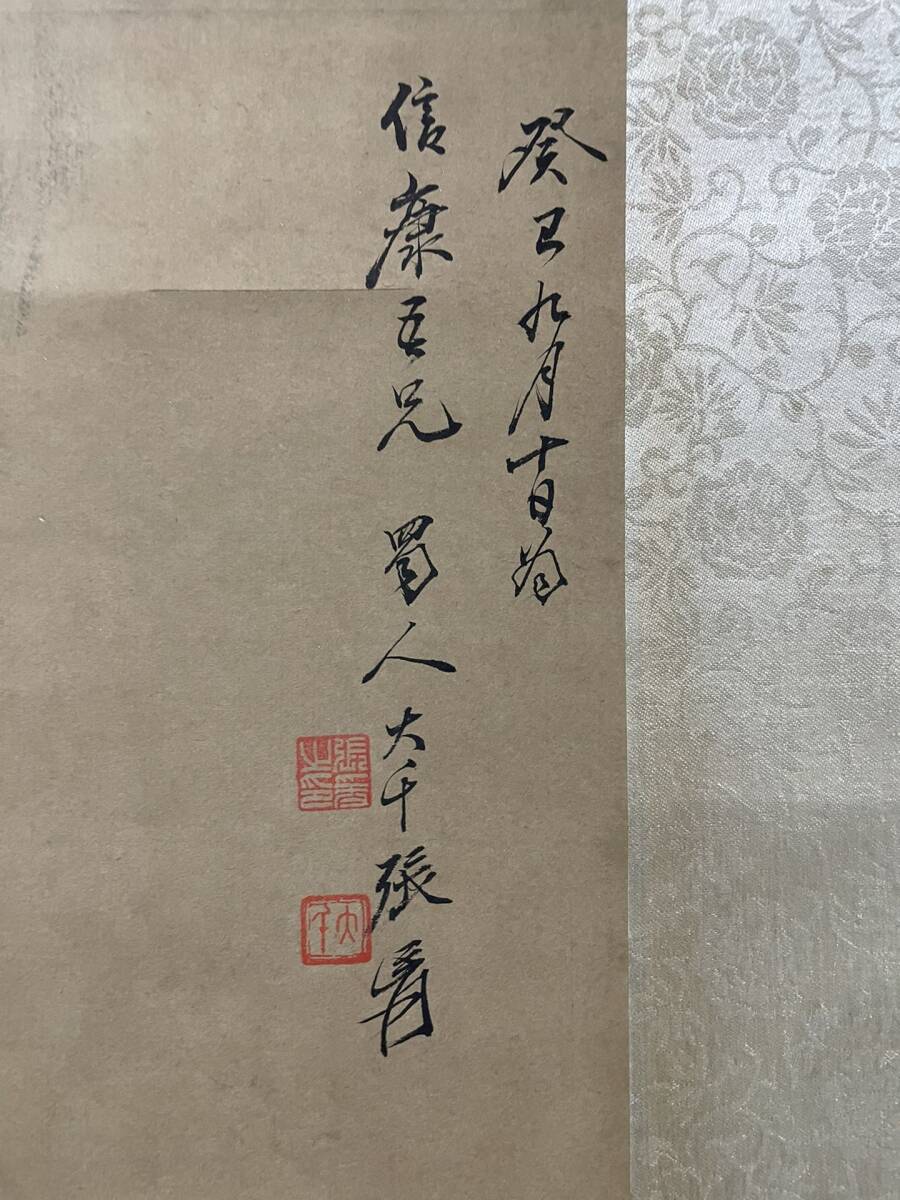 癸巳九月十日為
信康吾兄 蜀人大千張爰
張爰之印
大千